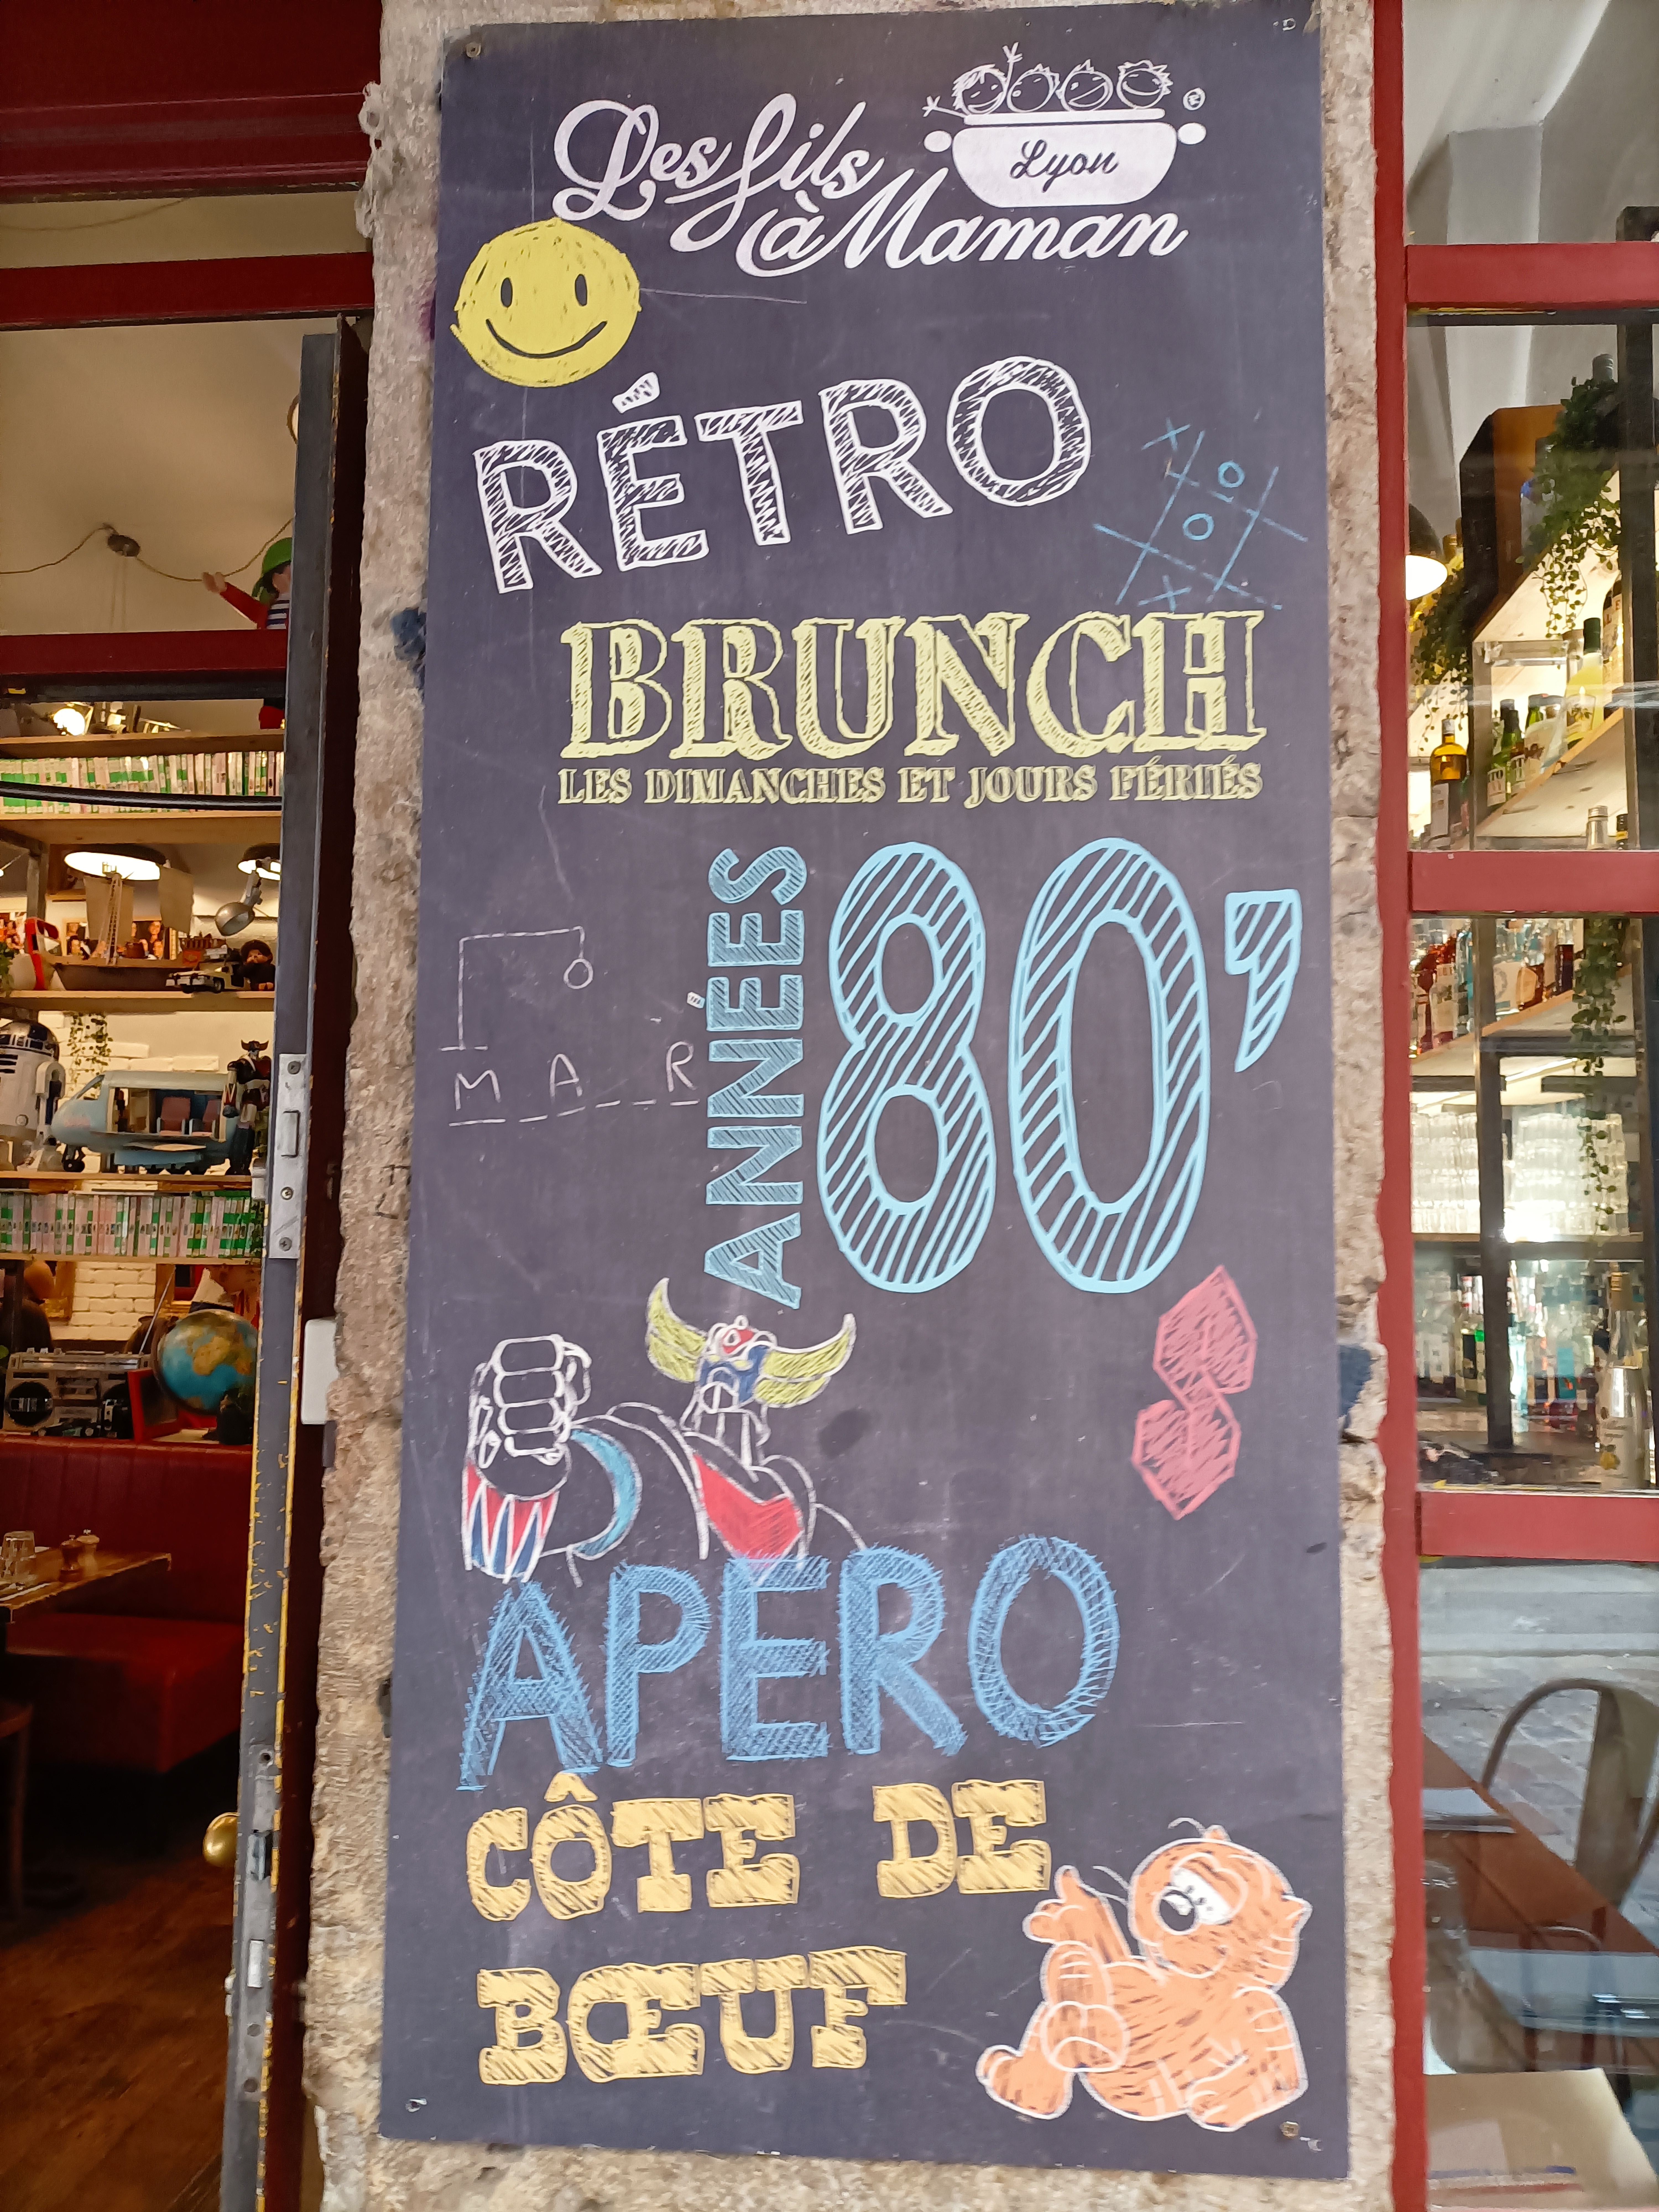 Les fils
à Maman
Lyon
®
RÉTRO
X
O
O
X
BRUNCH
LES DIMANCHES ET JOURS FÉRIÉS
ANNÉES
80'
M A _ R
APERO
CÔTE DE
BŒUF